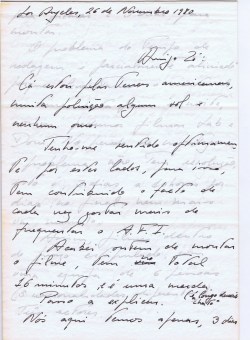 Los Angeles, 26 de Novembro 1980
Amigo Zé:
Cá estou pelas Terras americanas,
muita poluição algum sol e
nenhum ouro.
Tenho-me sentido optimamen
te por estes lados, para isso,
tem contribuido o facto de
cada vez gostar mais de
frequentar o A.F.I.
Acabei ontem de montar
o filme, tem no Total
26 minutos e é uma merda.
Passo a explicar.
Nós aqui temos apenas, 3 dias